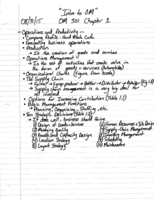 "Intro to OM"
OM 301 Chapter 1
• Operations and Productivity -
• Company Profile: Hard Rock Cafe
• Executing business operations
• Production
↳ Is the creation of goods and services
• Operations Management
↳ Is the set of activities that create value in the form of goods + services
• Organizational Charts (Figure from book)
• The Supply Chain
↳ Farmer → Syrup producer → Bottler → Distributor → Retailer
↳ Supply chain management is a very big deal for all involved
• Options for Increasing Contribution (Table 1.1)
• Basic Management Functions
↳ Planning, Organizing, Staffing, etc.
• Ten Strategic Decisions (Table 1.2)
↳ If done well, business should thrive
① Design of Goods + Services
② Managing Quality
③ Process and Capacity Design
④ Location Strategy
⑤ Layout Strategy
⑥ Human Resources + Job Design
⑦ Supply-Chain Management
⑧ Inventory Management
⑨ Scheduling
⑩ Maintenance